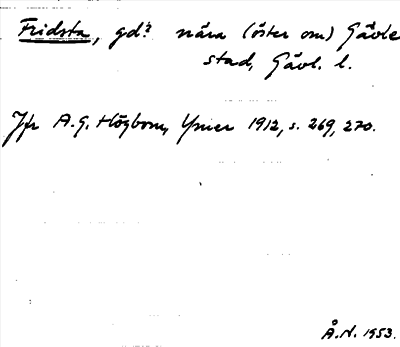 Fridsta, gd? nära (öster om) Gävle
stad, Gävl. l.
Jfr A.G. Högbom, Ymer 1912, s. 269, 270.
Å.N. 1953.